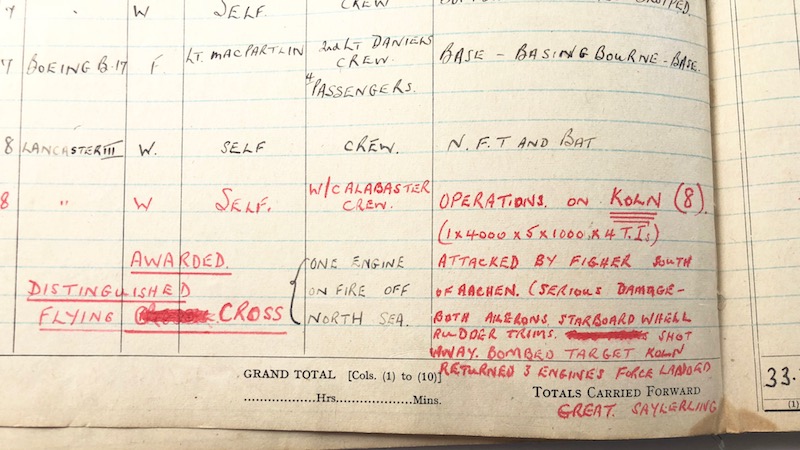 W SELF. CREW
7 BOEING B.17 F. LT. MACPARTLIN 2nd LT DANIELS CREW. 4 PASSENGERS. BASE – BASINGBOURNE – BASE.
8 LANCASTER III W. SELF CREW. N.F.T AND BAT
8 " W SELF. W/C ALABASTER CREW. OPERATIONS. ON KOLN (8).
(1x4000 x 5x1000 x 4 T.Is)
AWARDED. ONE ENGINE ATTACKED BY FIGHER SOUTH
DISTINGUISHED ON FIRE OFF OF AACHEN. (SERIOUS DAMAGE –
FLYING CROSS NORTH SEA. BOTH AILERONS. STARBOARD WHELL
RUDDER TRIMS. SHOT
AWAY. BOMBED TARGET KOLN
RETURNED 3 ENGINES FORCE LANDED
GRAND TOTAL [Cols. (1) to (10)]
33.
TOTALS CARRIED FORWARD
..................Hrs..................Mins.
(1)
GREAT. SAYLERLING